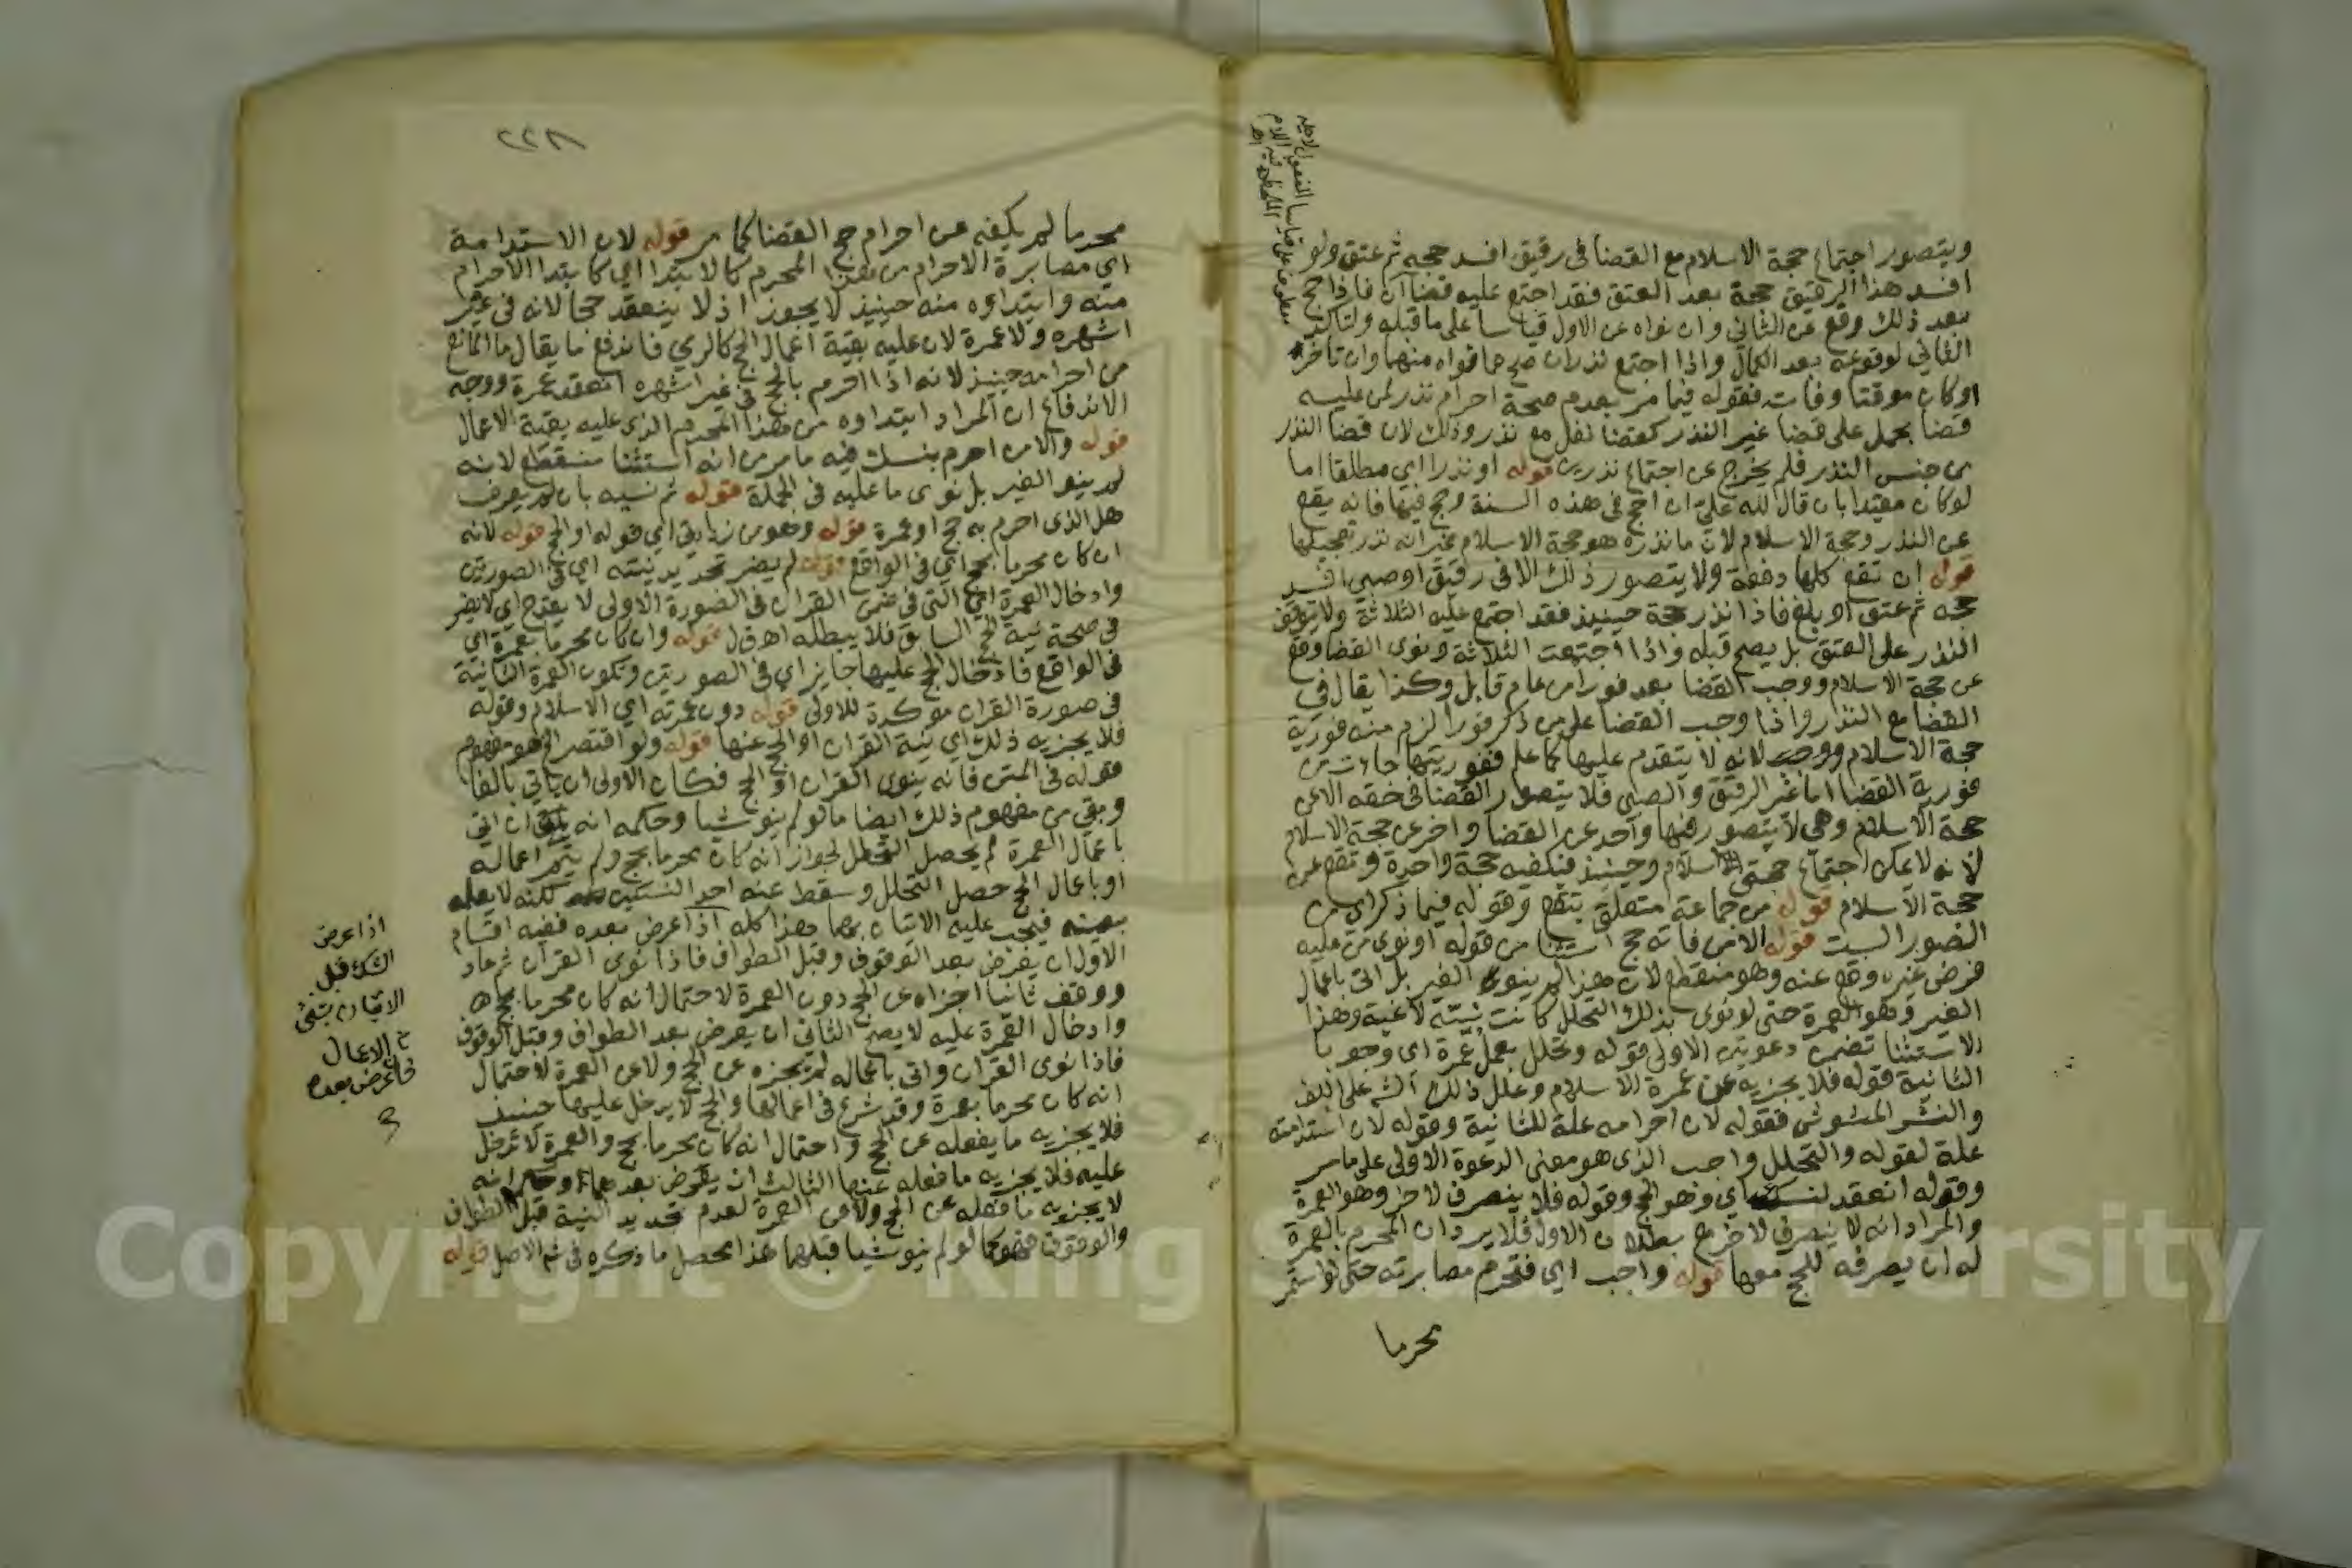 ويتصور اجتماع حجة الاسلام مع القضا في رقيق افسد حجه ثم عتق ولو
افسد هذا الرقيق حجة بعد العتق فقد اجتمع عليه قضاآن فاذا حج
بعد ذلك وقع عن الثاني وان نواه عن الاول قياسا على ما قبله ولتاكد
الثاني لوقوعه بعد الكمال واذا اجتمع نذران صح ما نواه منهما وان تاخر
اوكان موقتا وفات فقوله فيما مر بعدم صحة احرام نذر لمن عليه
قضا يحمل على قضا غير النذر كقضا نفل مع نذر وذلك لان قضا النذر
من جنس النذر فلم يخرج عن اجتماع نذرين قوله او نذرا اي مطلقا اما
لو كان مقيدا بان قال لله علي ان احج في هذه السنة وحج فيها فانه يقع
عن النذر وحجة الاسلام لان ما نذره هو حجة الاسلام غير انه نذر تعجيلها
قوله ان تقع كلها دفعة ولا يتصور ذلك الا في رقيق او صبي افسد
حجه ثم عتق او بلغ فاذا نذر حجة حينيذ فقد اجتمع عليه الثلاثة ولا يتوقف
النذر على العتق بل يصح قبله واذا اجتمعت الثلاثة ونوى القضا وقع
عن حجة الاسلام ووجب القضا بعد فورا من عام قابل وكذا يقال في
القضا مع النذر واذا وجب القضا على من ذكر فورا لزم منه فورية
حجة الاسلام لانه لا يتقدم عليها كما علم ففوريتها جاءت من
فورية القضا اما غير الرقيق والصبي فلا يتصور القضا في حقه الا عن
حجة الاسلام وهي لا يتصور فيها واحد عن القضا واخر عن حجة الاسلام
لانه لا يمكن اجتماع حجتي الاسلام وحينيذ فتكفيه حجة واحدة وتقع عن
حجة الاسلام قوله من جماعة متعلق بتقع وقوله فيما ذكر اي من
الصور الست قوله الا من فاته حج استثنا من قوله او نوى من عليه
فرض غيره وقع عنه وهو منقطع لان هذا لم ينو الغير بل اتى باعمال
الغير وهو العمرة حتى لو نوى بذلك التحلل كانت نيته لاغية وهذا
الاستثنا تضمن دعوتين الاولى قوله وتحلل بعمل عمرة اي وجوبا
الثانية قوله فلا يجزيه عن عمرة الاسلام وعلل ذلك الش على اللف
والنشر المشوش فقوله لان احرامه علة للثانية وقوله لان استدامته
علة لقوله والتحلل واجب الذي هو معنى الدعوة الاولى على ما مر
وقوله انعقد لنسك اي وهو الحج وقوله فلا ينصرف لاخر وهو العمرة
والمراد انه لا ينصرف لاخر مع بطلان الاول فلا يرد ان المحرم بالعمرة
له ان يصرفه للحج معها قوله واجب اي فتحرم مصابرته حتى لو استمر
محرما
٢٢٨
محرما لم يكفه عن احرام حج القضا كما مر قوله لان الاستدامة
اي مصابرة الاحرام من هذا المحرم كالابتدا اي كابتدا الاحرام
منه وابتداوه منه حينيذ لا يجوز اذ لا ينعقد حجا لانه في غير
اشهره ولا عمرة لان عليه بقية اعمال الحج كالرمي فاندفع ما يقال ما المانع
من احرامه حينيذ لانه اذا احرم بالحج في غير اشهره انعقد عمرة ووجه
الاندفاع ان المراد ابتداوه من هذا المحرم الذي عليه بقية الاعمال
قوله والا من احرم بنسك فيه ما مر من انه استثنا منقطع لانه
لم ينو الغير بل نوى ما عليه في الجملة قوله ثم نسيه بان لم يعرف
هل الذي احرم به حج او عمرة قوله وهو من زيادتي اي قوله او الحج قوله لانه
ان كان محرما بحج اي في الواقع قوله لم يضر تجديد نيته اي في الصورتين
وادخال العمرة اي التي في ضمن القران في الصورة الاولى لا يقدح اي لا يضر
في صحة نية الحج السابق فلا يبطله اهـ ق ل قوله وان كان محرما بعمرة اي
في الواقع فادخال الحج عليها جايز اي في الصورتين وتكون العمرة الثانية
في صورة القران موكدة للاولى قوله دون عمرته اي الاسلام وقوله
فلا يجزيه ذلك اي نية القران او الحج عنها قوله ولو اقتصر الخ هو مفهوم
قوله في المتن فانه ينوى القران او الحج فكان الاولى ان ياتي بالفا
وبقي من مفهوم ذلك ايضا ما لو لم ينو شيا وحكمه انه ان اتى
باعمال العمرة لم يحصل التحلل لجواز انه كان محرما بحج ولم يتم اعماله
او باعمال الحج حصل التحلل وسقط عنه احد النسكين لكنه لا يعلم
بعينه فيجب عليه الاتيان بهما هذا كله اذا عرض بعده ففيه اقسام
الاول ان يعرض بعد الوقوف وقبل الطواف فاذا نوى القران ثم عاد
ووقف ثانيا اجزاه عن الحج دون العمرة لاحتمال انه كان محرما بحج
وادخال العمرة عليه لا يصح الثاني ان يعرض بعد الطواف وقبل الوقوف
فاذا نوى القران واتى باعماله لم يجزه عن الحج ولا عن العمرة لاحتمال
انه كان محرما بعمرة وقد شرع في اعمالها والحج لا يدخل عليها حينيذ
فلا يجزيه ما يفعله عن الحج واحتمال انه كان محرما بحج والعمرة لا تدخل
عليه فلا يجزيه ما فعله عنها الثالث ان يعرض بعدهما وحكمه انه
لا يجزيه ما فعله عن الحج ولا عن العمرة لعدم تجديد النية قبل الطواف
والوقوف فهو كما لو لم ينو شيا قبلهما هذا محصل ما ذكره في شم الاصل قوله
اذا عرض
الشك قبل
الاتيان بشي
من الاعمال
فان عرض بعده
Copyright © King Saud University